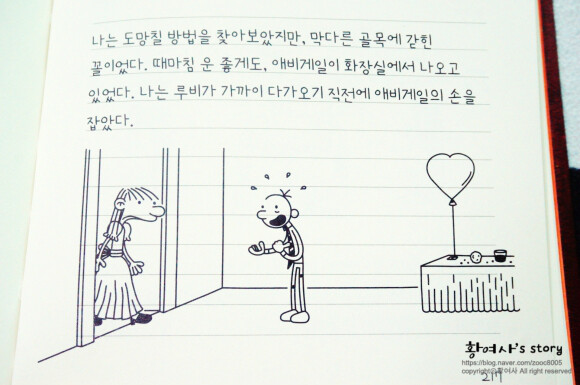 나는 도망칠 방법을 찾아보았지만, 막다른 골목에 갇힌
꼴이었다. 때마침 운 좋게도, 애비게일이 화장실에서 나오고
있었다. 나는 루비가 가까이 다가오기 직전에 애비게일의 손을
잡았다.
황여사's story
https://blog.naver.com/zooc8005
copyright@황여사 All right reserved
217